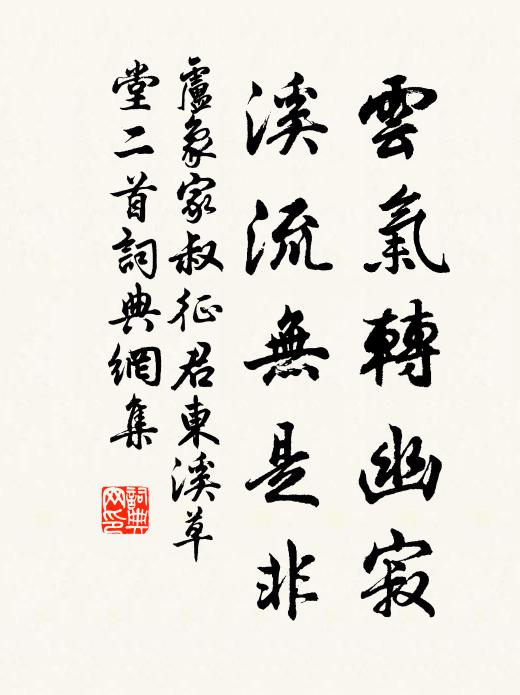 雲氣轉幽寂
溪流無是非
盧象家叔征君東溪草
堂二首詞典網集
詞典
网印